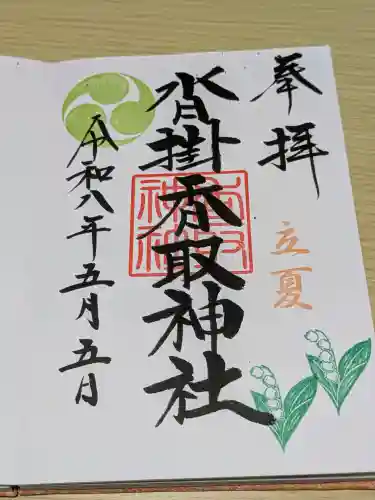 奉拝
立夏
沓掛香取神社
令和八年五月五日